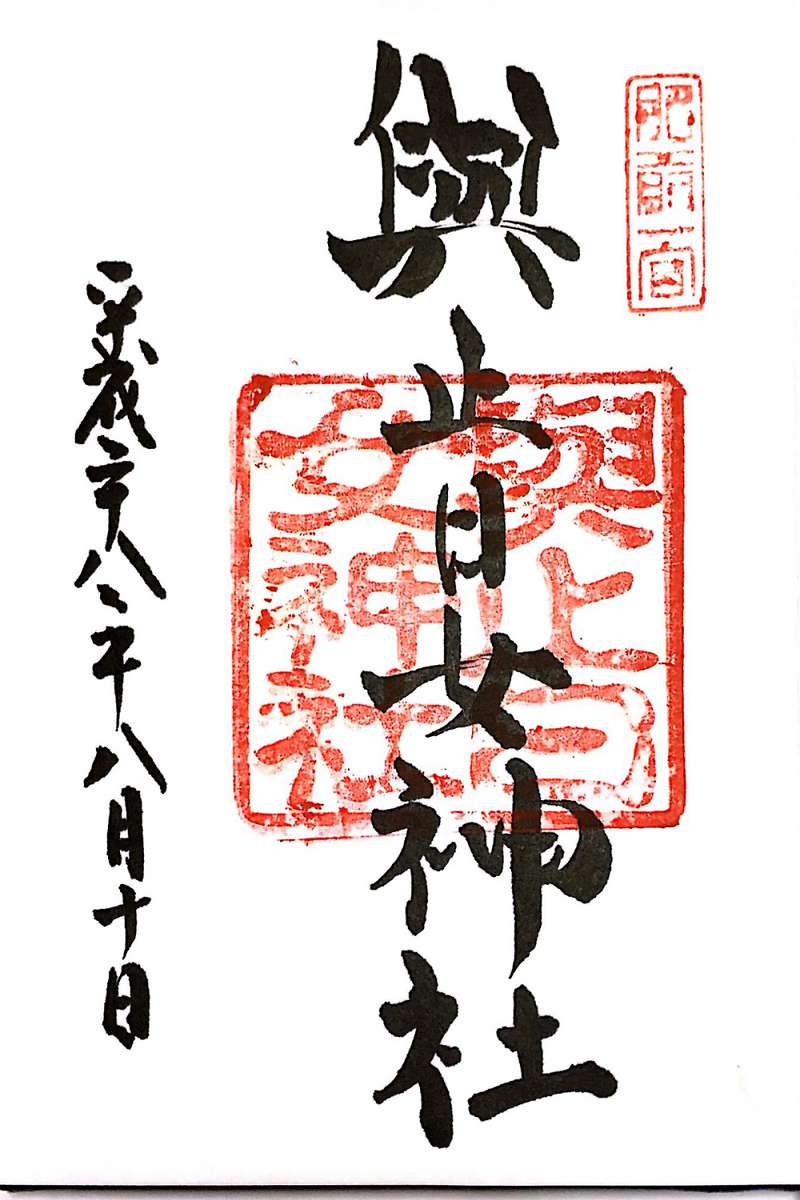 肥前一宮
與止日女神社
與止日女神社
平成二十八年八月十日